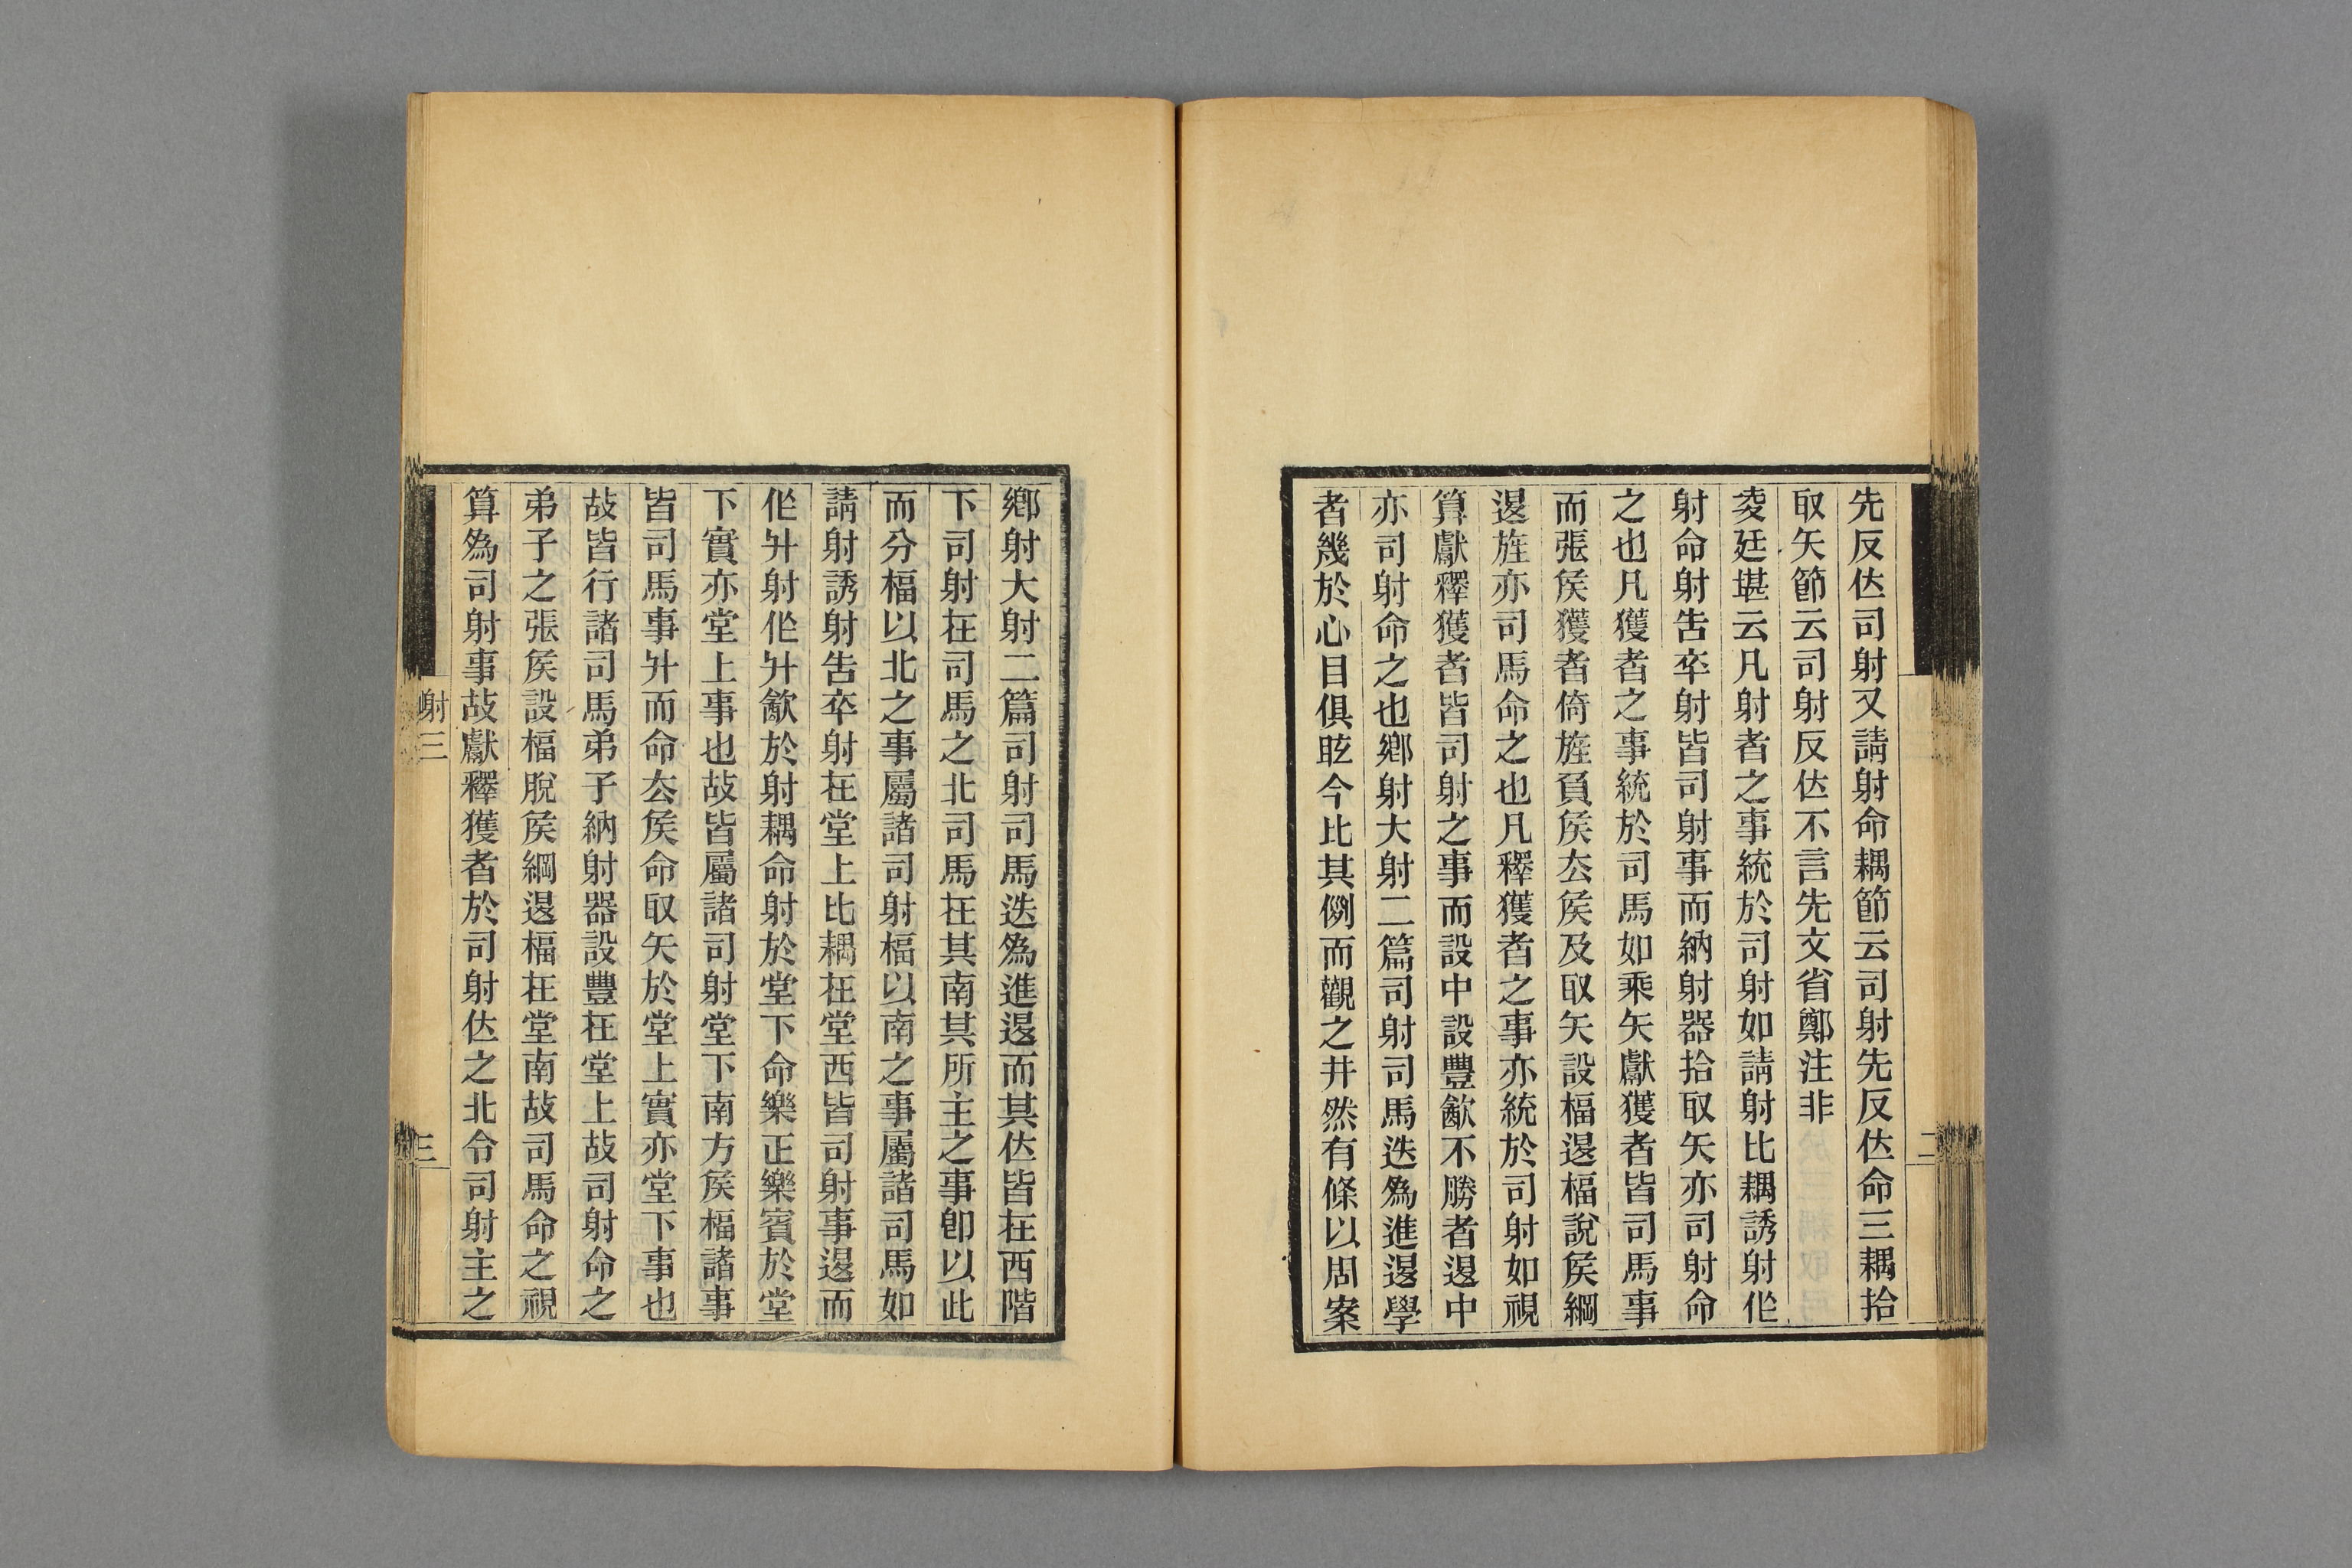 先反位司射又請射命耦節云司射先反位命三耦拾
取矢節云司射反位不言先文省鄭注非
凌廷堪云凡射者之事統於司射如請射比耦誘射作
射命射告卒射皆司射事而納射器拾取矢亦司射命
之也凡獲者之事統於司馬如乘矢獻獲者皆司馬事
而張侯獲者倚旌負侯去侯及取矢設楅退楅說侯綱
退旌亦司馬命之也凡釋獲者之事亦統於司射如視
算獻釋獲者皆司射之事而設中設豐飮不勝者退中
亦司射命之也鄉射大射二篇司射司馬迭爲進退學
者幾於心目俱眩今比其例而觀之井然有條以周案
鄉射大射二篇司射司馬迭爲進退而其位皆在西階
下司射在司馬之北司馬在其南其所主之事卽以此
而分楅以北之事屬諸司射楅以南之事屬諸司馬如
請射誘射告卒射在堂上比耦在堂西皆司射事退而
作升射作升飮於射耦命射於堂下命樂正樂賓於堂
下實亦堂上事也故皆屬諸司射堂下南方侯楅諸事
皆司馬事升而命去侯命取矢於堂上實亦堂下事也
故皆行諸司馬弟子納射器設豐在堂上故司射命之
弟子之張侯設楅脫侯綱退楅在堂南故司馬命之視
算爲司射事故獻釋獲者於司射位之北令司射主之
射三
三
二